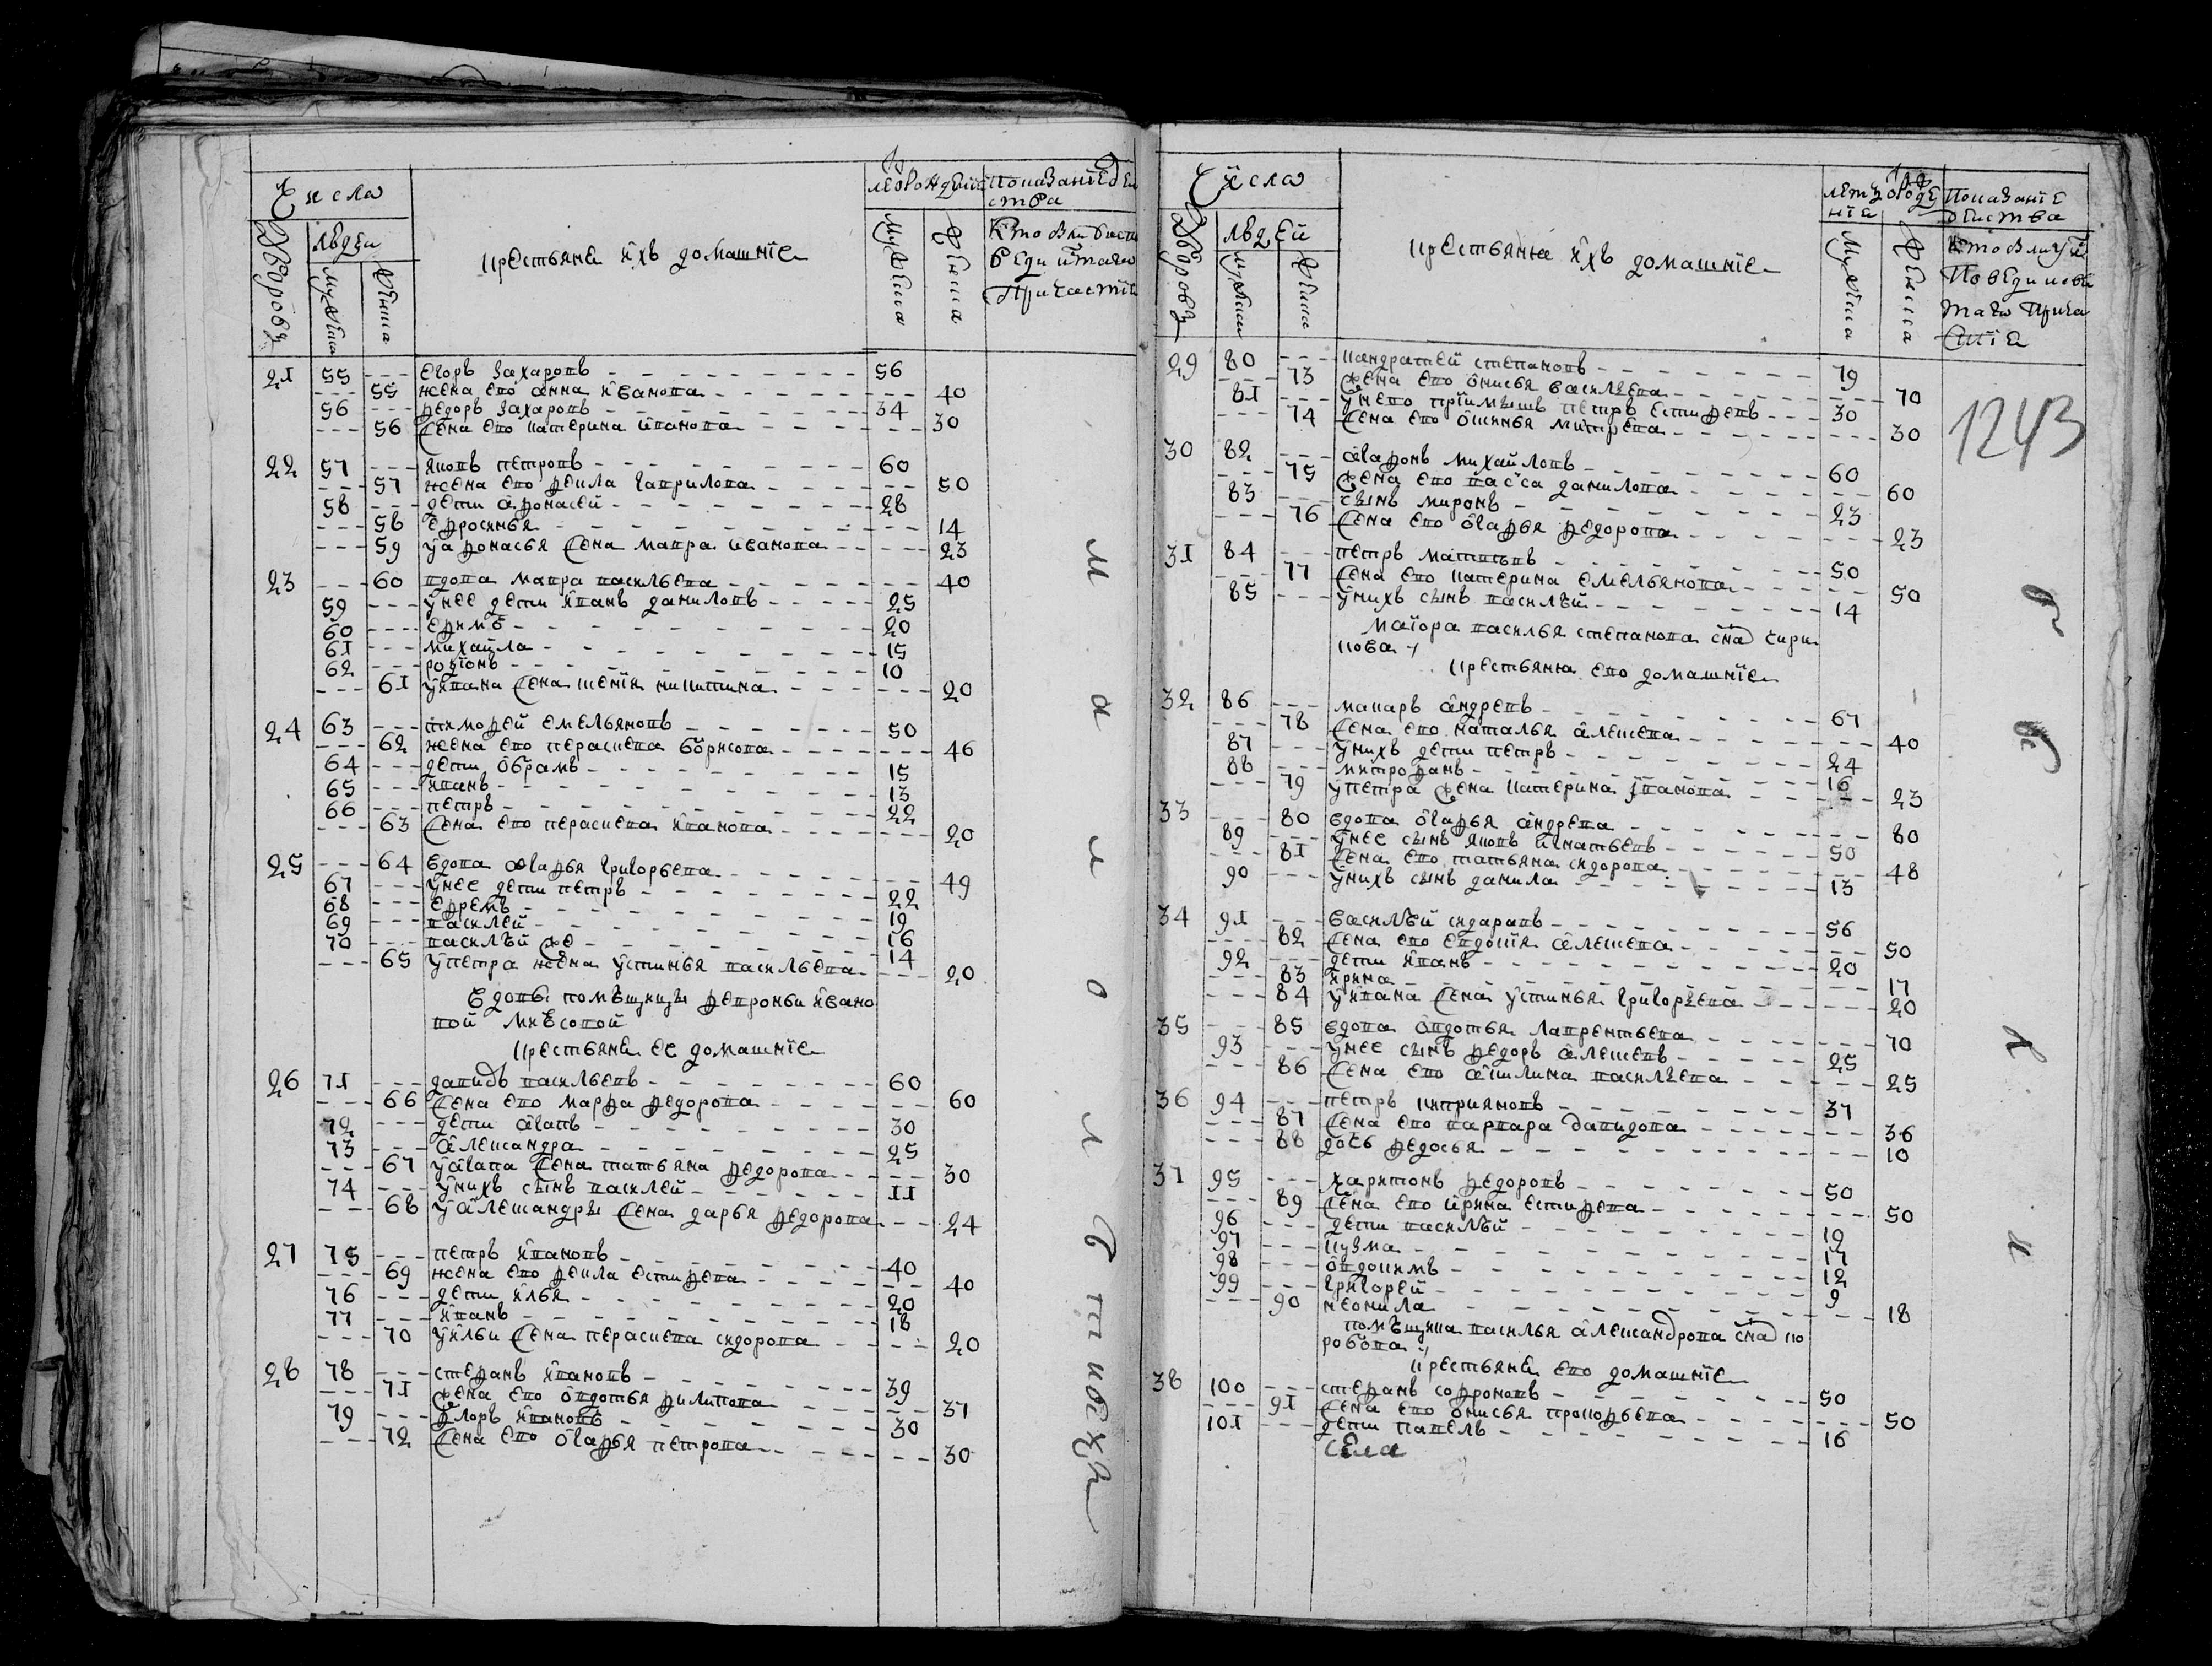 Числа
Дворовъ
людеи
Мужеска
Женска
крестьяне ихъ домашние
Мужеска
Женска
21 55 --- егоръ захаровъ 56
55 жена ево анна иванова 40
56 --- федоръ захаровъ 34
56 жена ево катерина иванова 30
22 57 --- яковъ петровъ 60
57 жена ево фекла гаврилова 50
58 --- дети афонасеи 28
58 ефросинья 14
59 у афонасья жена мавра иванова 23
23 --- 60 вдова мавра васильева 40
59 --- у нее дети иванъ даниловъ 25
60 --- ефимъ 20
61 --- михаила 15
62 --- родионъ 10
61 у ивана жена никитина 20
24 63 --- тимофеи емельяновъ 50
62 жена ево параскева борисова 46
64 --- дети абрамъ 15
65 --- иванъ 13
66 --- петръ 22
63 жена ево параскева иванова 20
25 --- 64 вдова агафья григорьева 49
67 --- у нее дети петръ 22
68 --- ефремъ 19
69 --- василеи 16
70 --- василеи же 14
65 у петра жена устинья васильева 20
вдовы помещицы февроньи ивано
вой
крестьяне ее домашние
26 71 --- давидъ васильевъ 60
66 жена ево марфа федорова 60
72 --- дети агапъ 30
73 --- александра 25
67 у агапа жена татьяна федорова 30
74 --- у нихъ сынъ василеи 11
68 у александры жена дарья федорова 24
27 75 --- петръ ивановъ 40
69 жена ево фекла естифева 40
76 --- дети илья 20
77 --- иванъ 18
70 у ильи жена параскева сидорова 20
28 78 --- стефанъ ивановъ 39
71 жена ево авдотья филипова 37
79 --- флоръ ивановъ 30
72 жена ево агафья петрова 30
Числа
Дворовъ
людей
Мужеска
Женска
крестьяне ихъ домашние
Мужеска
Женска
1243
29 80 --- кандратей степановъ 79
73 жена ево анисья васильева 70
81 --- у нево приимышъ петръ естифевъ 30
74 жена ево аксинья митрева 30
30 82 --- агафонъ михайловъ 60
75 жена ево васса данилова 60
83 --- сынъ миронъ 23
76 жена ево агафья федорова 23
31 84 --- петръ матвевъ 50
77 жена ево катерина емельянова 50
85 --- у нихъ сынъ василей 14
маиора василья степанова сна чири
кова
крестьяня ево домашние
32 86 --- макаръ андревъ 67
78 жена ево наталья алексева 40
87 --- у нихъ дети петръ 24
88 --- митрофанъ 16
79 у петра жена катерина иванова 23
33 --- 80 вдова агафья андрева 80
89 --- у нее сынъ яковъ игнатьевъ 50
81 жена ево татьяна сидорова 48
90 --- у нихъ сынъ данила 13
34 91 --- василѣй сидаравъ 56
82 жена ево евдокия алексева 50
92 --- дети иванъ 20
83 ирина 17
84 у ивана жена устинья григорьева 20
35 --- 85 вдова авдотья лаврентьева 70
93 --- у нее сынъ федоръ алексевъ 25
86 жена ево акилина васильева 25
36 94 --- петръ киприяновъ 37
87 жена ево варвара давидова 36
88 дочь федосья 10
37 95 --- харитонъ федоровъ 50
89 жена ево ирина естифева 50
96 --- дети василѣй 19
97 --- кузма 17
98 --- авдокимъ 12
99 --- григорей 9
90 неонила 18
помѣщика василья александрова сна ко
робова
крестьяне ево домашние
38 100 --- стефанъ софроновъ 50
91 жена ево анисья прокофьева 50
101 --- дети павелъ 16
села